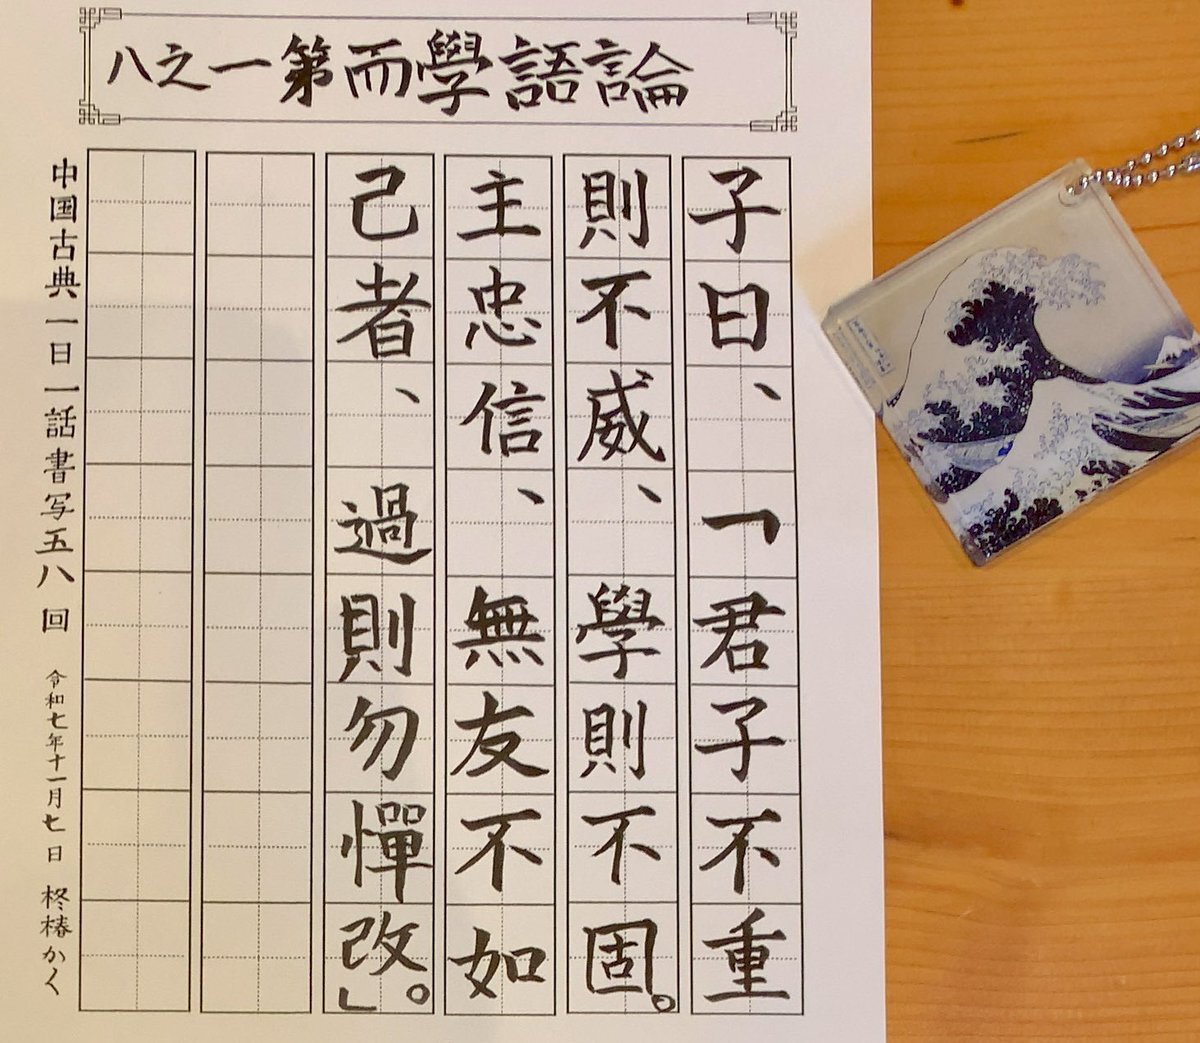 論語學而第一之八
子曰、「君子不重
則不威、學則不固。
主忠信、無友不如
己者、過則勿憚改。」
中国古典一日一話書写五八回 令和七年十一月七日 柊椿かく